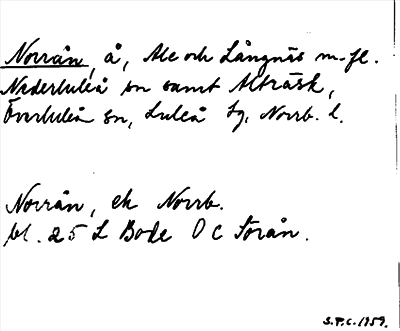 Norrån, å, Ale och Långnäs m.fl.
Nederluleå sn samt Alträsk,
Överluleå sn, Luleå tg, Norrb. l.
Norrån, ek Norrb.
bl. 25 L Bode O C Storån.
S.P.C. 1959.